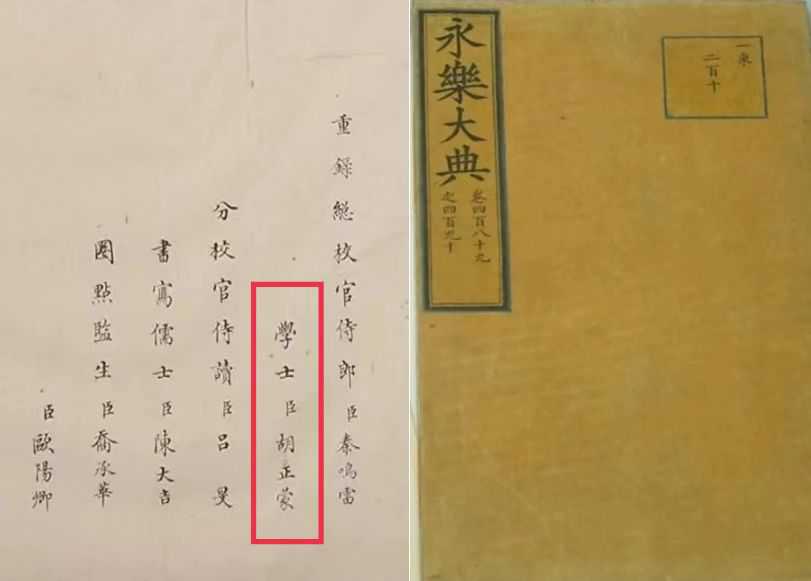 重錄總校官侍郎臣秦鳴雷
學士臣胡正蒙
分校官侍讀臣呂旻
書寫儒士臣陳大吉
圈點監生臣喬承華
臣歐陽卿
永樂大典
卷四百八十九
之四百九十
一東
二百十